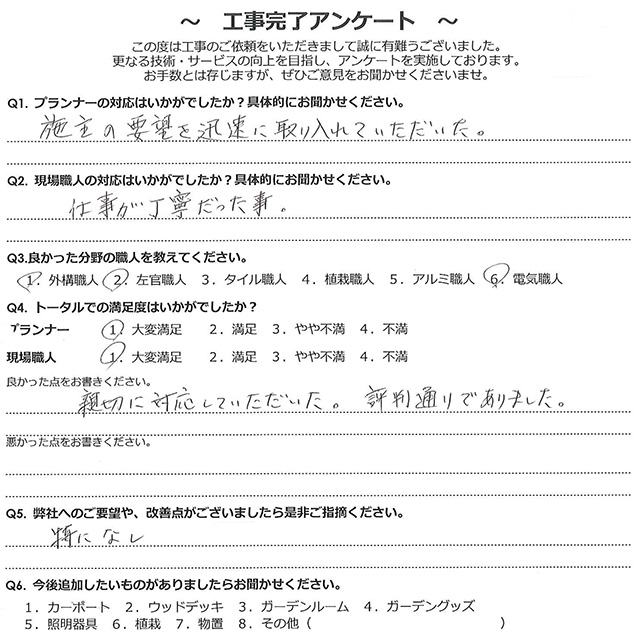 ～ 工事完了アンケート ～
この度は工事のご依頼をいただきまして誠に有難うございました。
更なる技術・サービスの向上を目指し、アンケートを実施しております。
お手数とは存じますが、ぜひご意見をお聞かせくださいませ。
Q1. プランナーの対応はいかがでしたか？具体的にお聞かせください。
施主の要望を迅速に取り入れていただいた。
Q2. 現場職人の対応はいかがでしたか？具体的にお聞かせください。
仕事が丁寧だった事。
Q3.良かった分野の職人を教えてください。
1. 外構職人 2. 左官職人 3. タイル職人 4. 植栽職人 5. アルミ職人 6. 電気職人
Q4. トータルでの満足度はいかがでしたか？
プランナー 1. 大変満足 2. 満足 3. やや不満 4. 不満
現場職人 1. 大変満足 2. 満足 3. やや不満 4. 不満
良かった点をお書きください。
親切に対応していただいた。 評判通りでありました。
悪かった点をお書きください。
Q5. 弊社へのご要望や、改善点がございましたら是非ご指摘ください。
特になし
Q6. 今後追加したいものがありましたらお聞かせください。
1. カーポート 2. ウッドデッキ 3. ガーデンルーム 4. ガーデングッズ
5. 照明器具 6. 植栽 7. 物置 8. その他（ ）